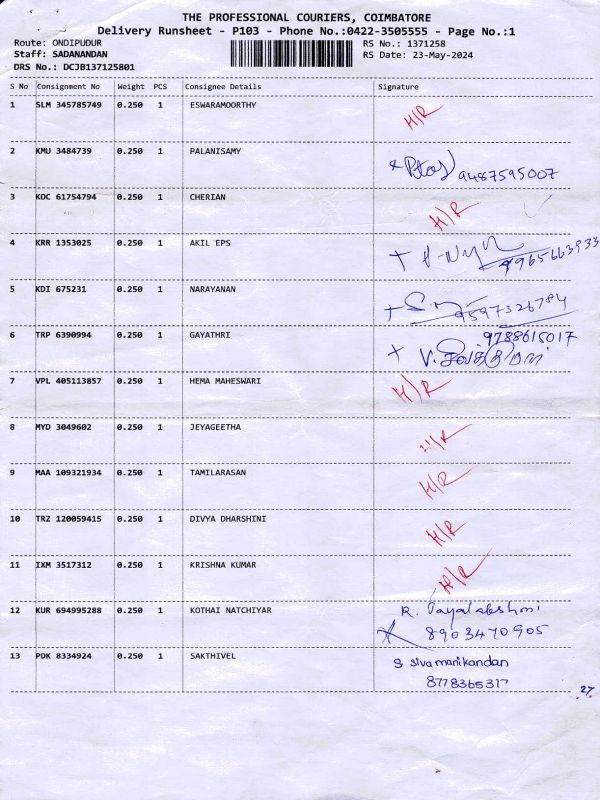 THE PROFESSIONAL COURIERS, COIMBATORE
Delivery Runsheet - P103 - Phone No.:0422-3505555 - Page No.:1
Route: ONDIPUDUR RS No.: 1371258
Staff: SADANANDAN RS Date: 23-May-2024
DRS No.: DCJB137125801
S No Consignment No Weight PCS Consignee Details Signature
1 SLM 345785749 0.250 1 ESWARAMOORTHY H/R
2 KMU 3484739 0.250 1 PALANISAMY 9487595007
3 KOC 61754794 0.250 1 CHERIAN H/R
4 KRR 1353025 0.250 1 AKIL EPS
5 KDI 675231 0.250 1 NARAYANAN 9597326784
9788615017
6 TRP 6390994 0.250 1 GAYATHRI
7 VPL 405113857 0.250 1 HEMA MAHESWARI H/R
8 MYD 3049602 0.250 1 JEYAGEETHA H/R
9 MAA 109321934 0.250 1 TAMILARASAN H/R
10 TRZ 120059415 0.250 1 DIVYA DHARSHINI H/R
11 IXM 3517312 0.250 1 KRISHNA KUMAR H/R
12 KUR 694995288 0.250 1 KOTHAI NATCHIYAR R. Jayalakshmi
8903470905
13 PDK 8334924 0.250 1 SAKTHIVEL S Sivamanikandan
8778365317
27